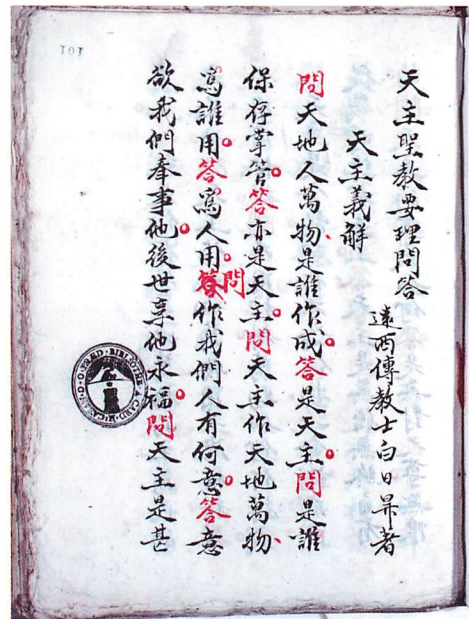 天主聖教要理問答
遠西傳教士白日昇著
天主義解
問天地人萬物、是誰作成。答是天主。問是誰
保存掌管。答亦是天主。問天主作天地萬物、
為誰用。答為人用。問作我們人有何意。答意
欲我們奉事他。後世享他永福。問天主是甚
101